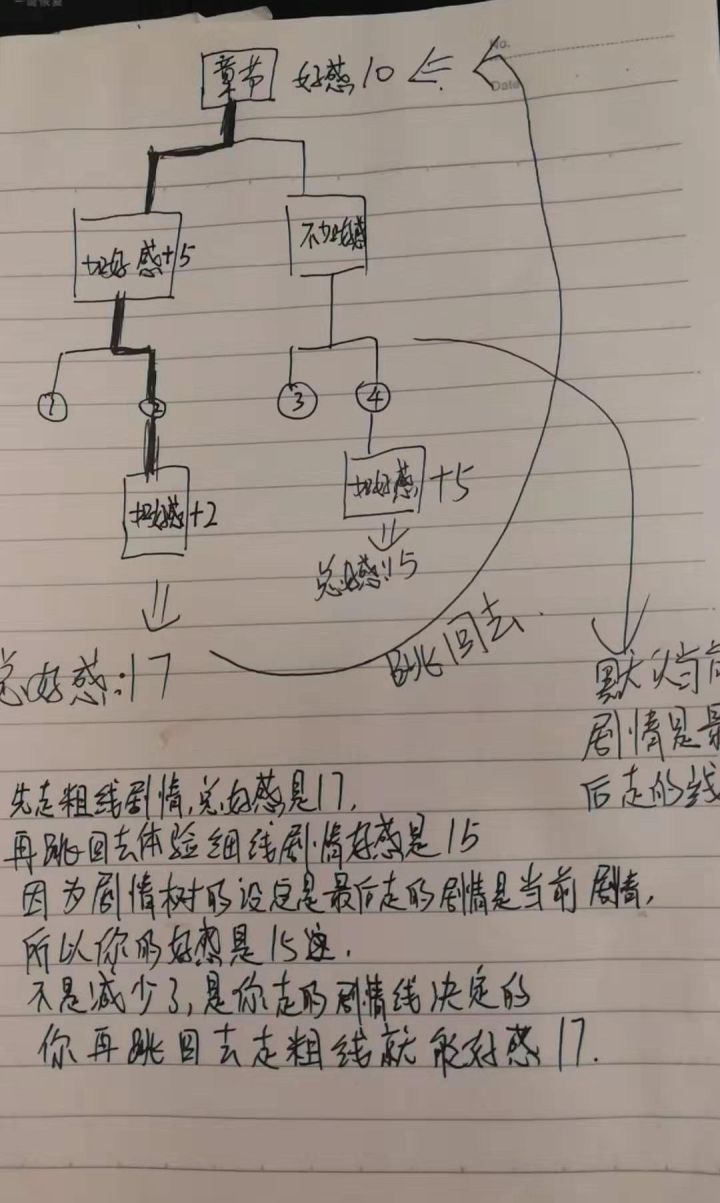 No.
Date
章节 好感10
加好感+5
不加好感
① ② ③ ④
加好感+2
加好感+5
总好感:15
总好感:17
跳回去
默认当前
剧情是最
后走的线
先走粗线剧情,总好感是17,
再跳回去体验细线剧情好感是15
因为剧情树的设定是最后走的剧情是当前剧情,
所以你的好感是15
不是减少了,是你走的剧情线决定的
你再跳回去走粗线就能好感17.